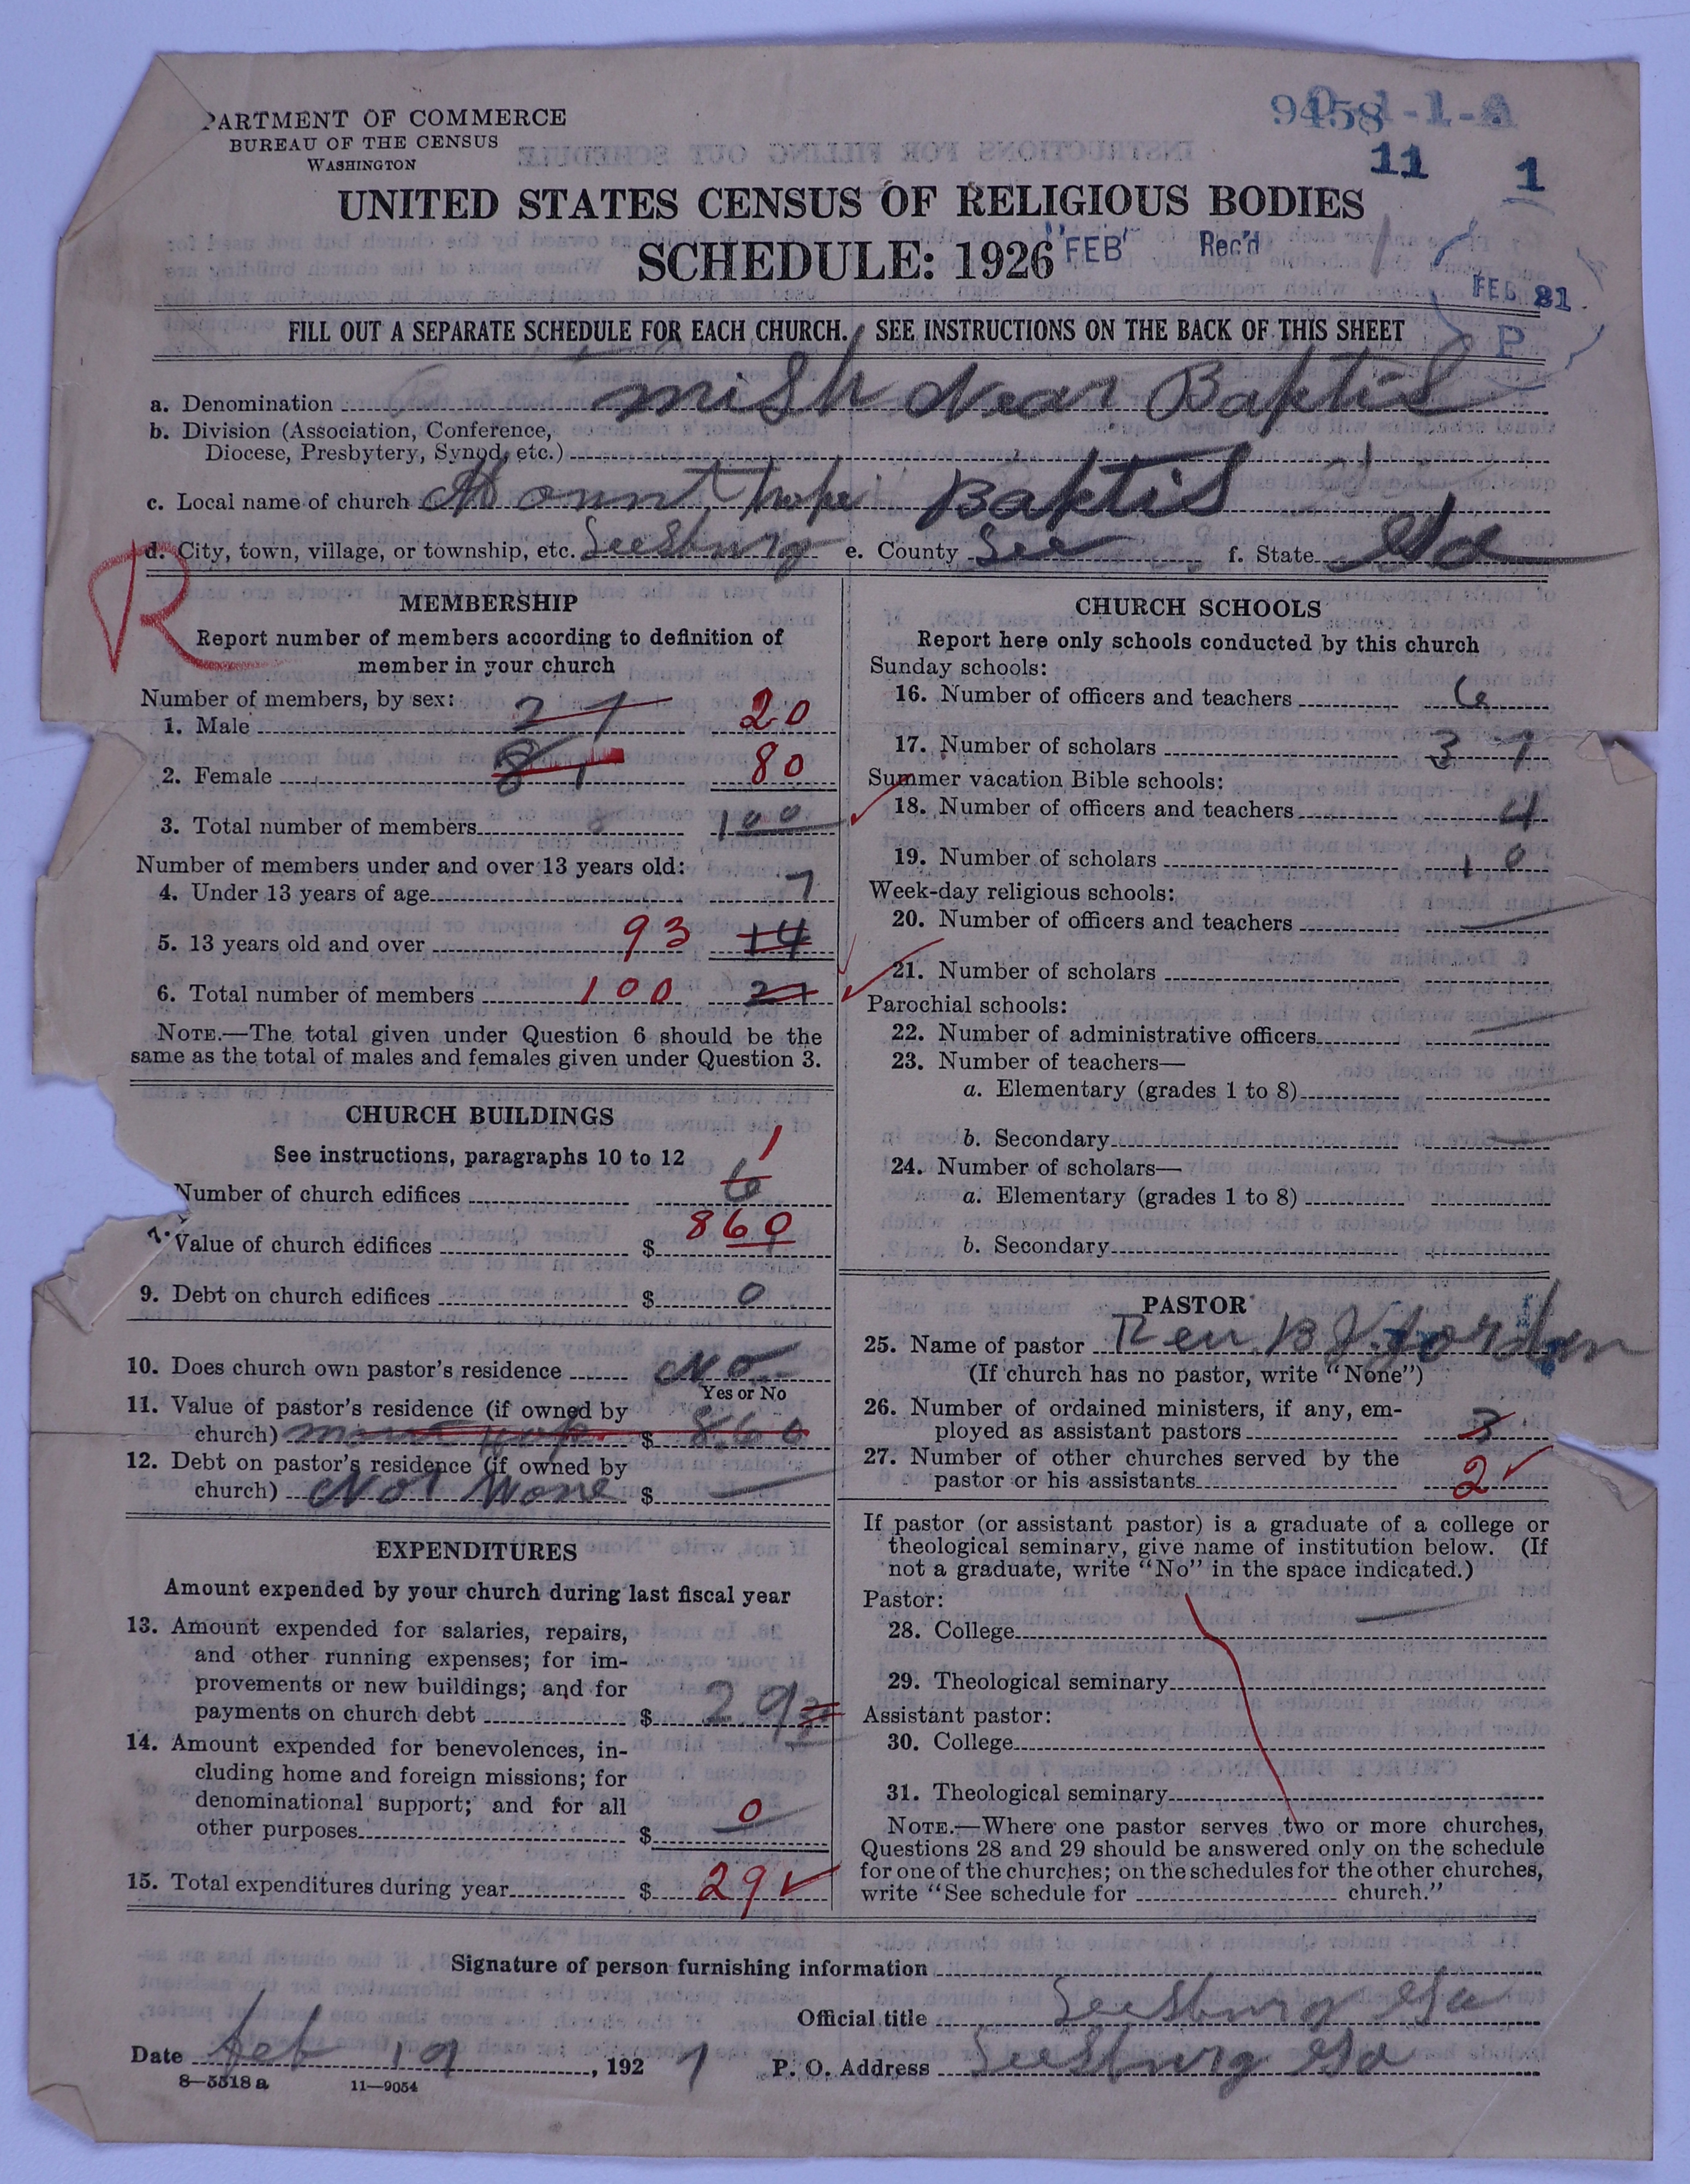 PARTMENT OF COMMERCE
BUREAU OF THE CENSUS
WASHINGTON
9458
11 1
UNITED STATES CENSUS OF RELIGIOUS BODIES
SCHEDULE: 1926
FEB Rec'd
FEB 21
P
FILL OUT A SEPARATE SCHEDULE FOR EACH CHURCH. SEE INSTRUCTIONS ON THE BACK OF THIS SHEET
a. Denomination mish Baptis
b. Division (Association, Conference,
Diocese, Presbytery, Synod, etc.)
c. Local name of church Mount hope Baptis
d. City, town, village, or township, etc. Leesburg e. County Lee f. State Ga
R
MEMBERSHIP
Report number of members according to definition of
member in your church
Number of members, by sex:
1. Male 27 20
2. Female 81 80
3. Total number of members 100
Number of members under and over 13 years old:
4. Under 13 years of age 7
5. 13 years old and over 93 14
6. Total number of members 100 21
NOTE.—The total given under Question 6 should be the
same as the total of males and females given under Question 3.
CHURCH BUILDINGS
See instructions, paragraphs 10 to 12
1
7. Number of church edifices 6
Value of church edifices $ 860
9. Debt on church edifices $ 0
10. Does church own pastor's residence No
Yes or No
11. Value of pastor's residence (if owned by
church) $ 860
12. Debt on pastor's residence (if owned by
church) Not None $ —
EXPENDITURES
Amount expended by your church during last fiscal year
13. Amount expended for salaries, repairs,
and other running expenses; for im-
provements or new buildings; and for
payments on church debt $ 29
14. Amount expended for benevolences, in-
cluding home and foreign missions; for
denominational support; and for all
other purposes $ 0
15. Total expenditures during year $ 29
CHURCH SCHOOLS
Report here only schools conducted by this church
Sunday schools:
16. Number of officers and teachers 6
17. Number of scholars 37
Summer vacation Bible schools:
18. Number of officers and teachers 4
19. Number of scholars 10
Week-day religious schools:
20. Number of officers and teachers —
21. Number of scholars
Parochial schools:
22. Number of administrative officers —
23. Number of teachers—
a. Elementary (grades 1 to 8) —
b. Secondary —
24. Number of scholars—
a. Elementary (grades 1 to 8)
b. Secondary
PASTOR
25. Name of pastor Rev. B J Jordan
(If church has no pastor, write "None")
26. Number of ordained ministers, if any, em-
ployed as assistant pastors 3
27. Number of other churches served by the
pastor or his assistants 2
If pastor (or assistant pastor) is a graduate of a college or
theological seminary, give name of institution below. (If
not a graduate, write "No" in the space indicated.)
Pastor:
28. College —
29. Theological seminary
Assistant pastor:
30. College
31. Theological seminary
NOTE.—Where one pastor serves two or more churches,
Questions 28 and 29 should be answered only on the schedule
for one of the churches; on the schedules for the other churches,
write "See schedule for church."
Signature of person furnishing information
Official title Leesburg Ga
Date feb 19, 1927 P. O. Address Leesburg Ga
8—5518a 11—9054